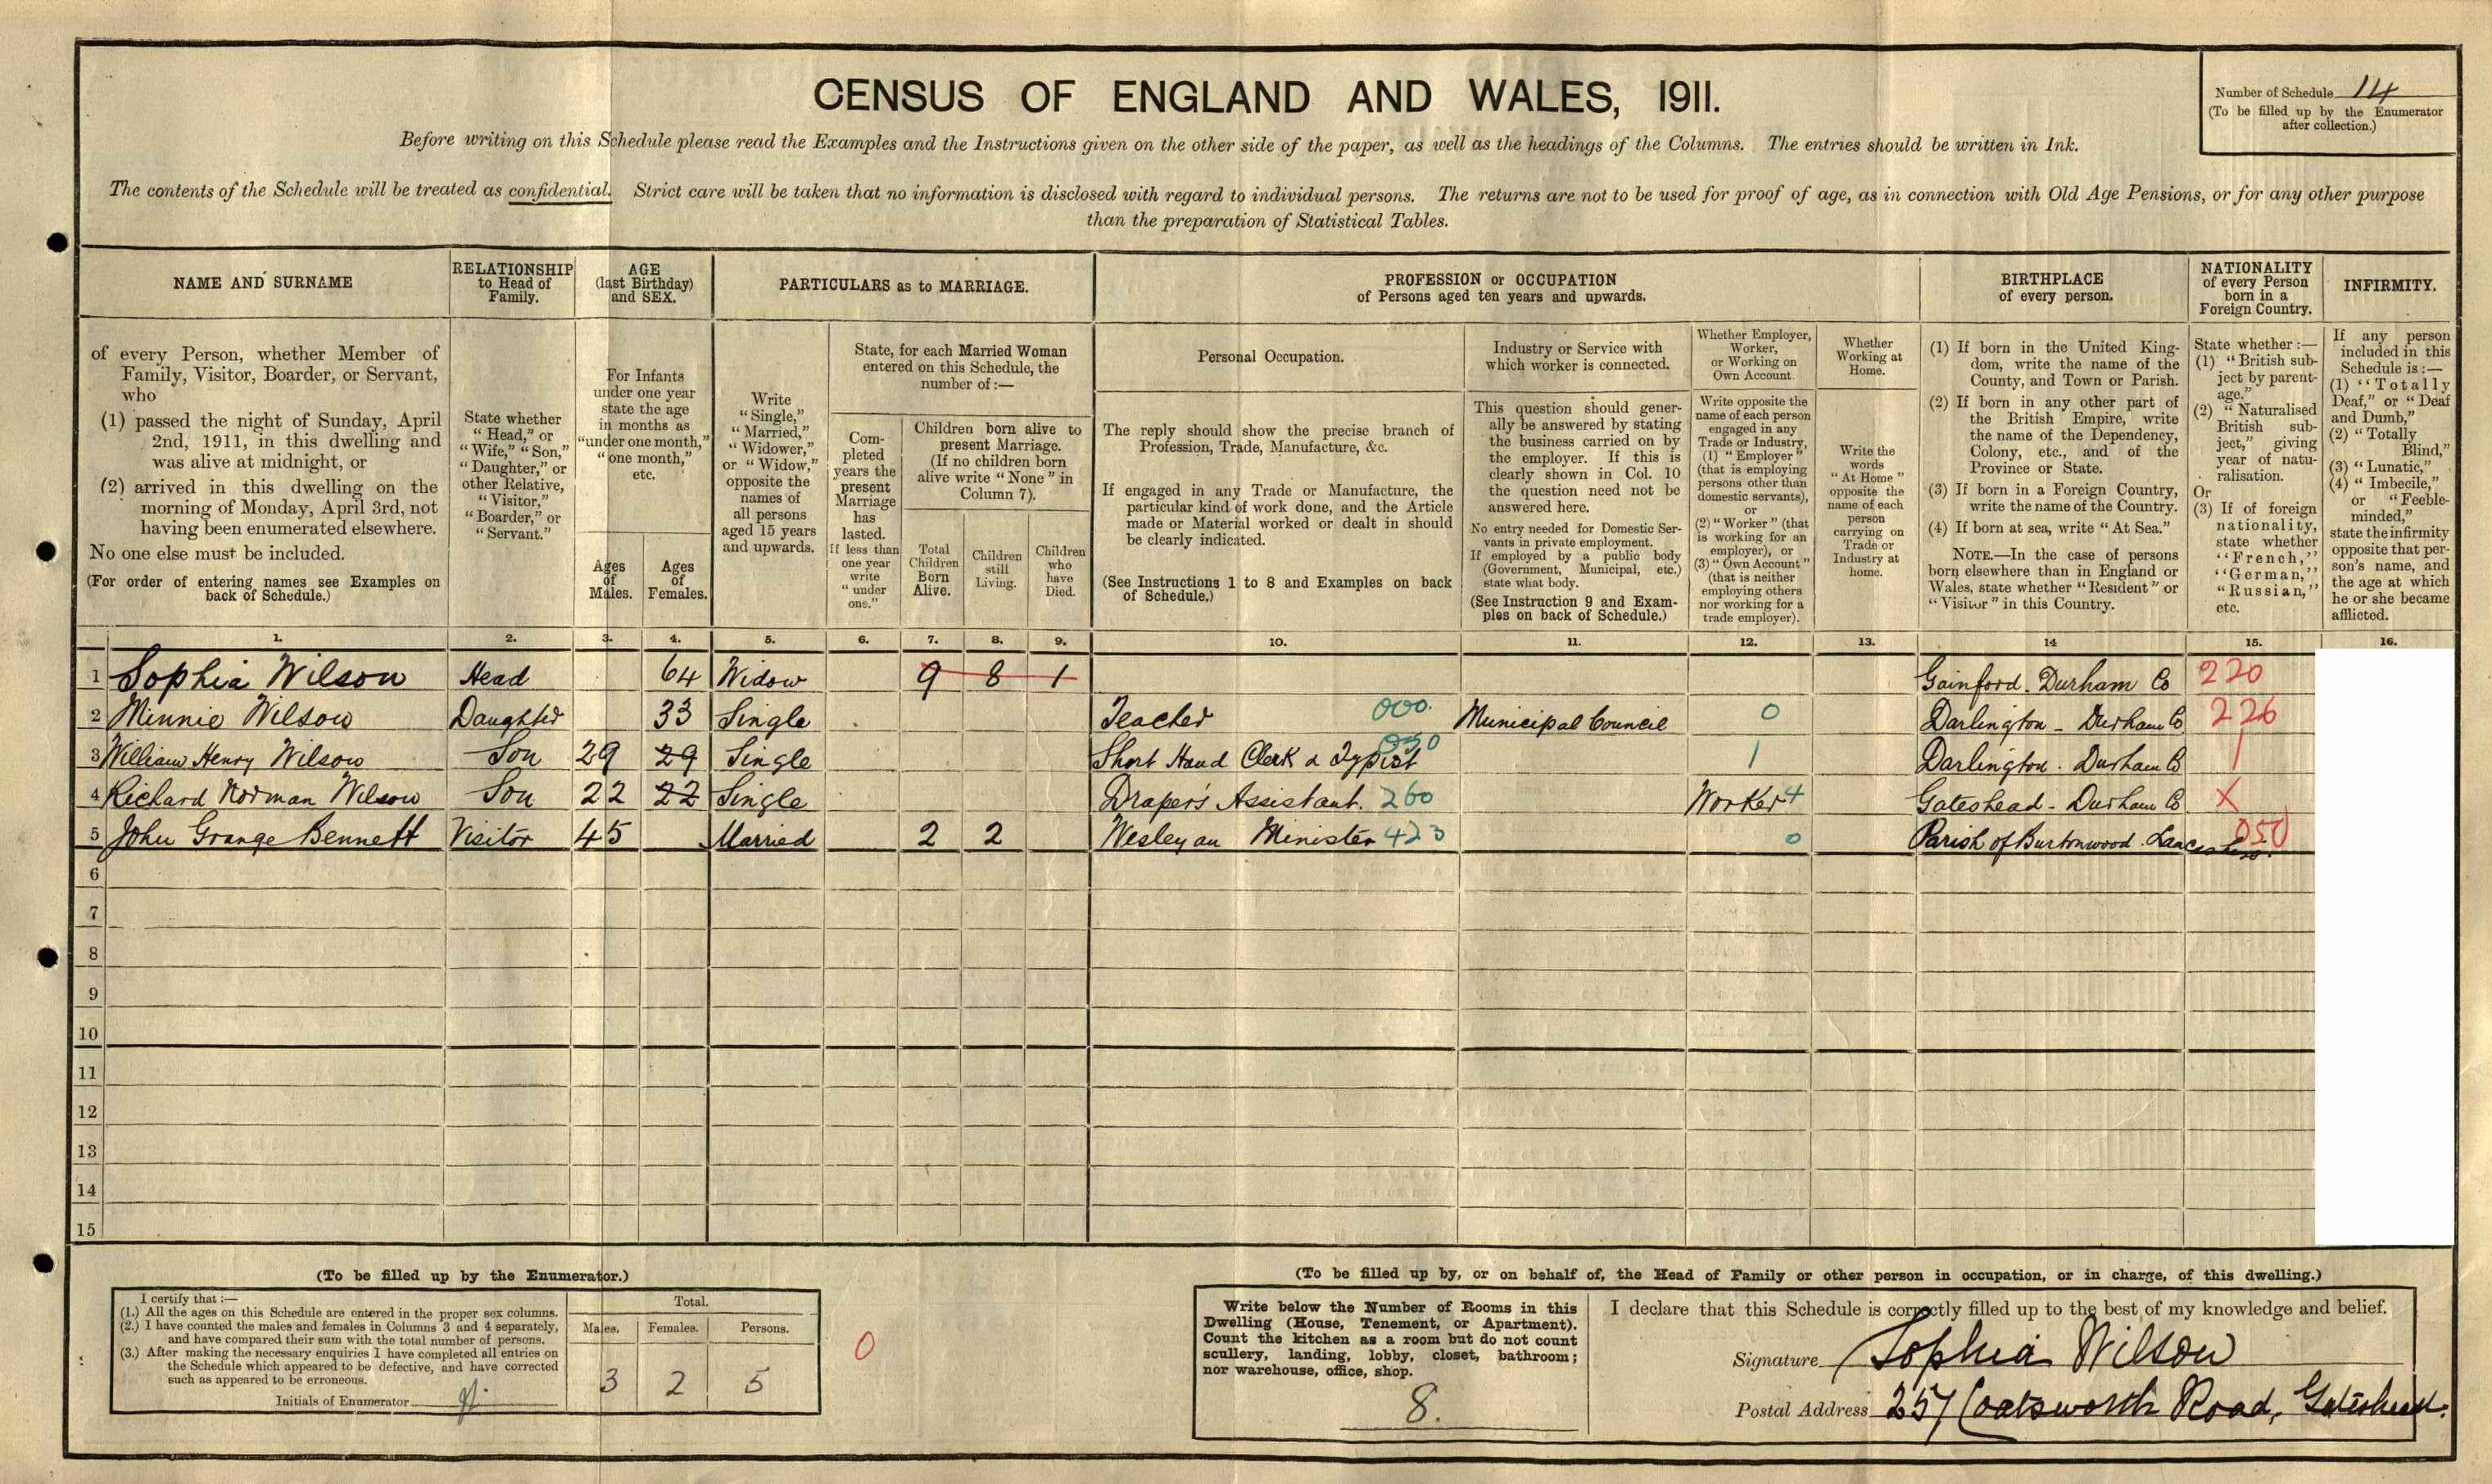 CENSUS OF ENGLAND AND WALES, 1911.
Number of Schedule 14
(To be filled up by the Enumerator
after collection.)
Before writing on this Schedule please read the Examples and the Instructions given on the other side of the paper, as well as the headings of the Columns. The entries should be written in Ink.
The contents of the Schedule will be treated as confidential. Strict care will be taken that no information is disclosed with regard to individual persons. The returns are not to be used for proof of age, as in connection with Old Age Pensions, or for any other purpose
than the preparation of Statistical Tables.
NAME AND SURNAME
of every Person, whether Member of
Family, Visitor, Boarder, or Servant,
who
(1) passed the night of Sunday, April
2nd, 1911, in this dwelling and
was alive at midnight, or
(2) arrived in this dwelling on the
morning of Monday, April 3rd, not
having been enumerated elsewhere.
No one else must be included.
(For order of entering names see Examples on
back of Schedule.)
RELATIONSHIP
to Head of
Family.
State whether
"Head," or
"Wife," "Son,"
"Daughter," or
other Relative,
"Visitor,"
"Boarder," or
"Servant."
AGE
(last Birthday)
and SEX.
For Infants
under one year
state the age
in months as
"under one month,"
"one month,"
etc.
Ages
of
Males.
Ages
of
Females.
PARTICULARS as to MARRIAGE.
Write
"Single,"
"Married,"
"Widower,"
or "Widow,"
opposite the
names of
all persons
aged 15 years
and upwards.
State, for each Married Woman
entered on this Schedule, the
number of:—
Com-
pleted
years the
present
Marriage
has
lasted.
If less than
one year
write
"under
one."
Children born alive to
present Marriage.
(If no children born
alive write "None" in
Column 7).
Total
Children
Born
Alive.
Children
still
Living.
Children
who
have
Died.
PROFESSION or OCCUPATION
of Persons aged ten years and upwards.
Personal Occupation.
The reply should show the precise branch of
Profession, Trade, Manufacture, &c.
If engaged in any Trade or Manufacture, the
particular kind of work done, and the Article
made or Material worked or dealt in should
be clearly indicated.
(See Instructions 1 to 8 and Examples on back
of Schedule.)
Industry or Service with
which worker is connected.
This question should gener-
ally be answered by stating
the business carried on by
the employer. If this is
clearly shown in Col. 10
the question need not be
answered here.
No entry needed for Domestic Ser-
vants in private employment.
If employed by a public body
(Government, Municipal, etc.)
state what body.
(See Instruction 9 and Exam-
ples on back of Schedule.)
Whether Employer,
Worker,
or Working on
Own Account.
Write opposite the
name of each person
engaged in any
Trade or Industry,
(1) "Employer"
(that is employing
persons other than
domestic servants),
or
(2) "Worker" (that
is working for an
employer), or
(3) "Own Account"
(that is neither
employing others
nor working for a
trade employer).
Whether
Working at
Home.
Write the
words
"At Home"
opposite the
name of each
person
carrying on
Trade or
Industry at
home.
BIRTHPLACE
of every person.
(1) If born in the United King-
dom, write the name of the
County, and Town or Parish.
(2) If born in any other part of
the British Empire, write
the name of the Dependency,
Colony, etc., and of the
Province or State.
(3) If born in a Foreign Country,
write the name of the Country.
(4) If born at sea, write "At Sea."
NOTE.—In the case of persons
born elsewhere than in England or
Wales, state whether "Resident" or
"Visitor" in this Country.
NATIONALITY
of every Person
born in a
Foreign Country.
State whether:—
(1) "British sub-
ject by parent-
age."
(2) "Naturalised
British sub-
ject," giving
year of natu-
ralisation.
Or
(3) If of foreign
nationality,
state whether
"French,"
"German,"
"Russian,"
etc.
INFIRMITY.
If any person
included in this
Schedule is:—
(1) "Totally
Deaf," or "Deaf
and Dumb,"
(2) "Totally
Blind,"
(3) "Lunatic,"
(4) "Imbecile,"
or "Feeble-
minded,"
state the infirmity
opposite that per-
son's name, and
the age at which
he or she became
afflicted.
1. 2. 3. 4. 5. 6. 7. 8. 9. 10. 11. 12. 13. 14 15. 16.
1 Sophia Wilson Head 64 Widow 9 8 1 Gainford. Durham Co 220
2 Minnie Wilson Daughter 33 Single Teacher 000. Municipal Council 0 Darlington - Durham Co 226
3 William Henry Wilson Son 29 29 Single Short Hand Clerk & Typist 1 Darlington. Durham Co 1
4 Richard Norman Wilson Son 22 22 Single Draper's Assistant. 260 Worker 4 Gateshead - Durham Co X
5 John Grange Bennett Visitor 45 Married 2 2 Wesleyan Minister 423 0 Parish of Burtonwood Lancashire. 050
6
7
8
9
10
11
12
13
14
15
(To be filled up by the Enumerator.)
I certify that:—
(1.) All the ages on this Schedule are entered in the proper sex columns.
(2.) I have counted the males and females in Columns 3 and 4 separately,
and have compared their sum with the total number of persons.
(3.) After making the necessary enquiries I have completed all entries on
the Schedule which appeared to be defective, and have corrected
such as appeared to be erroneous.
Initials of Enumerator
Total.
Males. Females. Persons.
3 2 5
0
(To be filled up by, or on behalf of, the Head of Family or other person in occupation, or in charge, of this dwelling.)
Write below the Number of Rooms in this
Dwelling (House, Tenement, or Apartment).
Count the kitchen as a room but do not count
scullery, landing, lobby, closet, bathroom;
nor warehouse, office, shop.
8.
I declare that this Schedule is correctly filled up to the best of my knowledge and belief.
Signature Sophia Wilson
Postal Address 257 Coatsworth Road, Gateshead.